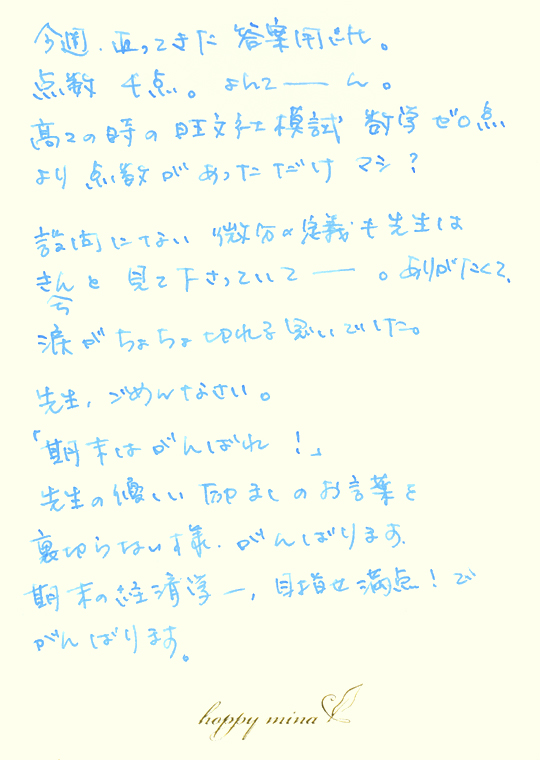 今週、返ってきた 答案用紙。
点数 4点。よんてーーん。
高2の時の旺文社模試 数学ゼロ点
より 点数があっただけ マシ？
設問にない "微分の定義"も先生は
きちんと 見て下さっていてーー。ありがたくて、
涙がちょちょ切れる思いでした。
先生、ごめんなさい。
「期末はがんばれ！」
先生の優しい励ましのお言葉を
裏切らない様、がんばります。
期末の経済学一、目指せ満点！で
がんばります。
happy mina